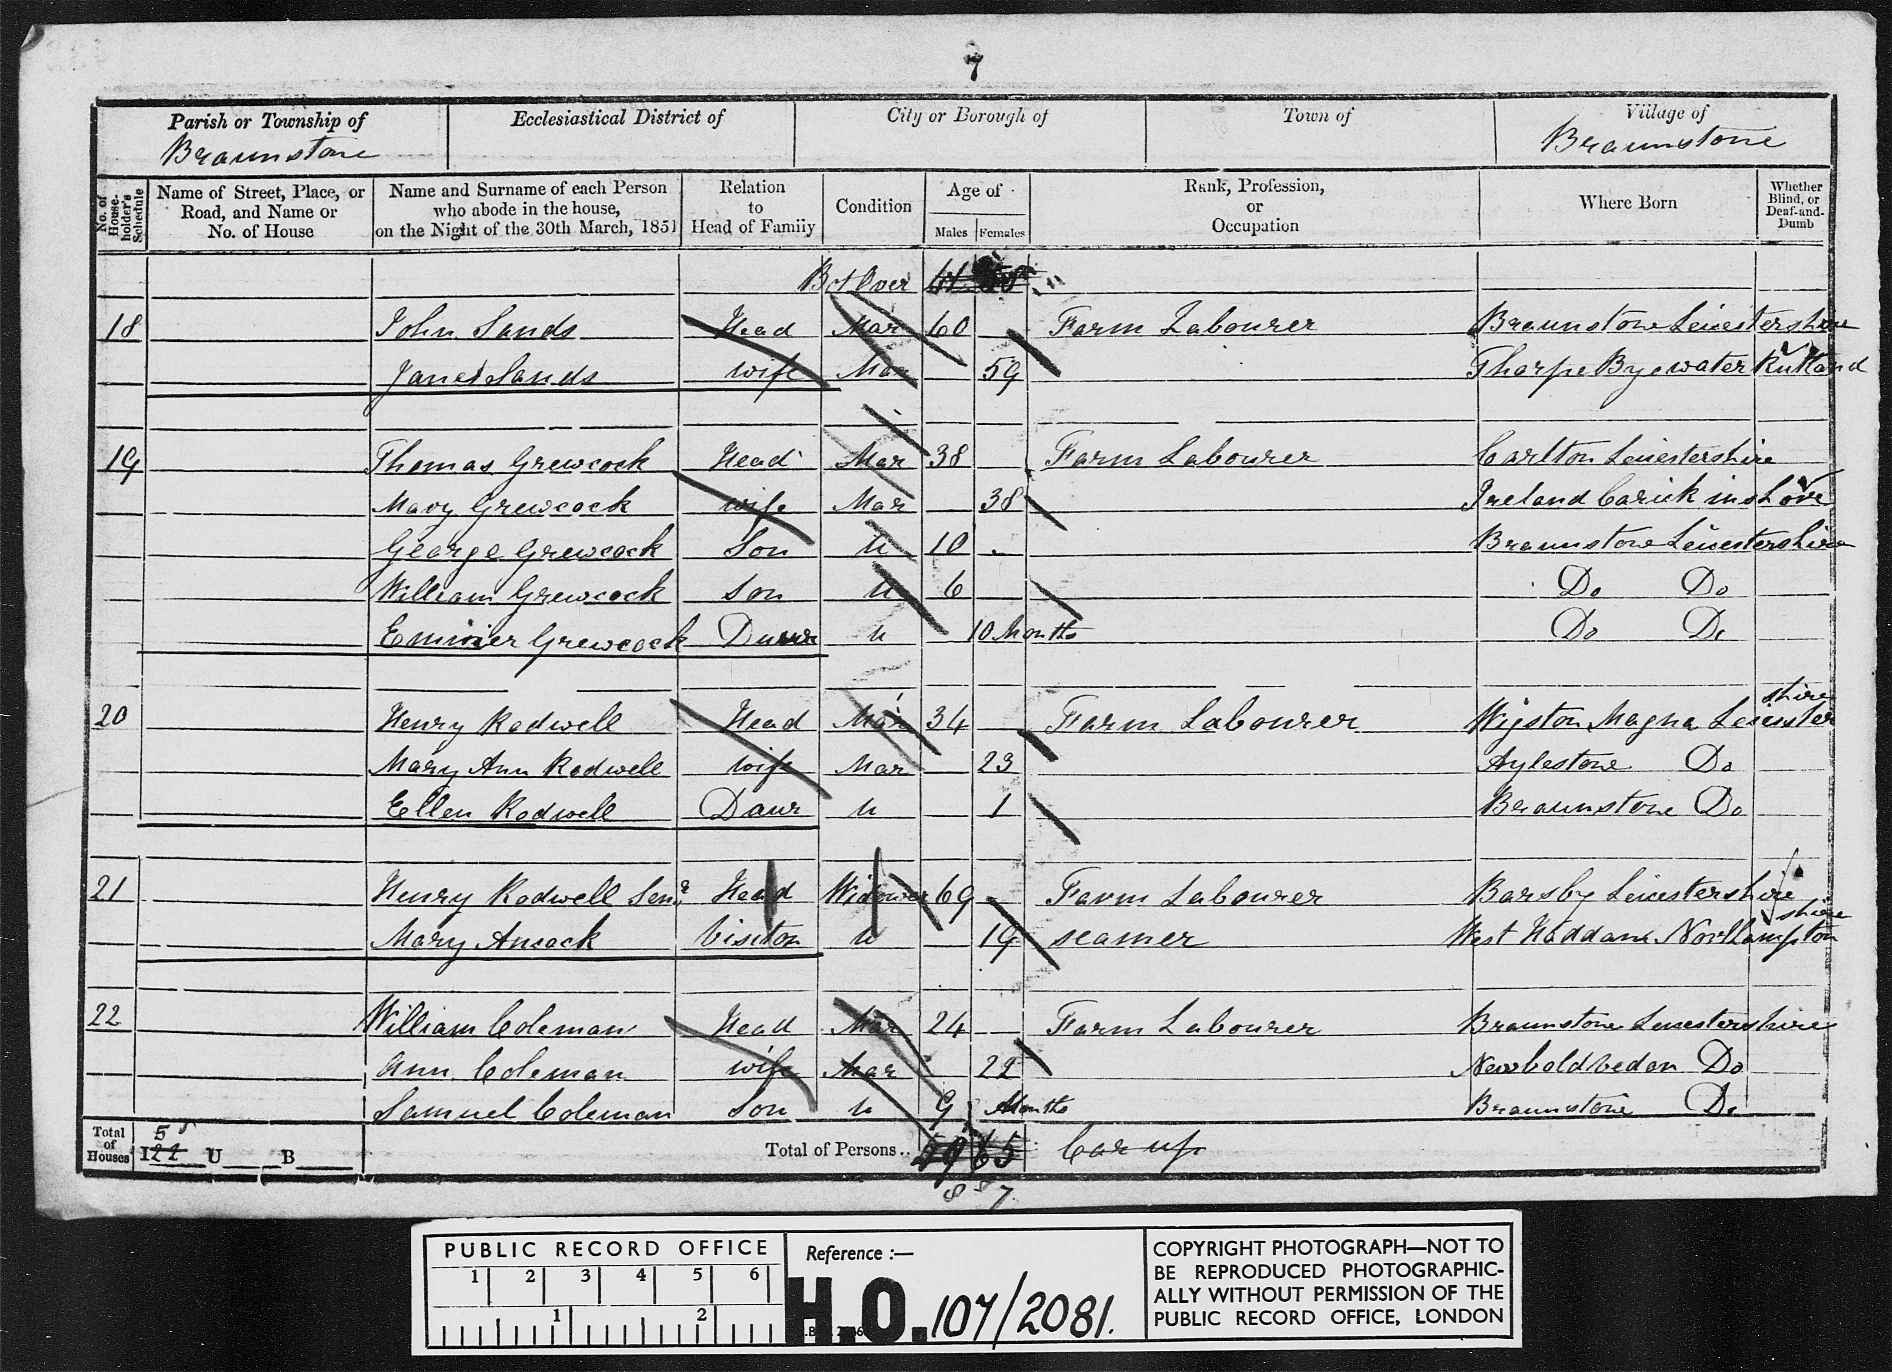 7
Parish or Township of Ecclesiastical District of City or Borough of Town of Village of
Braunstone Braunstone
No. of House-holder's Schedule Name of Street, Place, or Road, and Name or No. of House Name and Surname of each Person who abode in the house, on the Night of the 30th March, 1851 Relation to Head of Family Condition Age of Males Females Rank, Profession, or Occupation Where Born Whether Blind, or Deaf-and-Dumb
Bot Over
18 John Sands Head Mar 60 Farm Labourer Braunstone Leicestershire
Jane Sands wife Mar 59 Tharpe Byewater Rutland
19 Thomas Grewcock Head Mar 38 Farm Labourer Carlton Leicestershire
Mary Grewcock wife Mar 38 Ireland Carick
George Grewcock Son U 10 Braunstone Leicestershire
William Grewcock Son U 6 Do Do
Grewcock U 10 Months Do Do
20 Henry Rodwell Head Mar 34 Farm Labourer Wigston Magna Leicester shire
Mary Ann Rodwell wife Mar 23 Aylestone Do
Ellen Rodwell Daur U 1 Braunstone Do
21 Henry Rodwell Senr Head Widower 69 Farm Labourer Barsby Leicestershire
Mary Visitor U 19 seamer West Haddon Northampton shire
22 William Coleman Head Mar 24 Farm Labourer Braunstone Leicestershire
Ann Coleman wife Mar 22 Newbold Do
Samuel Coleman Son U 9 Months Braunstone Do
Total of Houses I 22 5 U B Total of Persons.. 65 Car up
8 7
PUBLIC RECORD OFFICE
1 2 3 4 5 6
1 2
Reference :—
H.O. 107/2081.
COPYRIGHT PHOTOGRAPH—NOT TO
BE REPRODUCED PHOTOGRAPHIC-
ALLY WITHOUT PERMISSION OF THE
PUBLIC RECORD OFFICE, LONDON